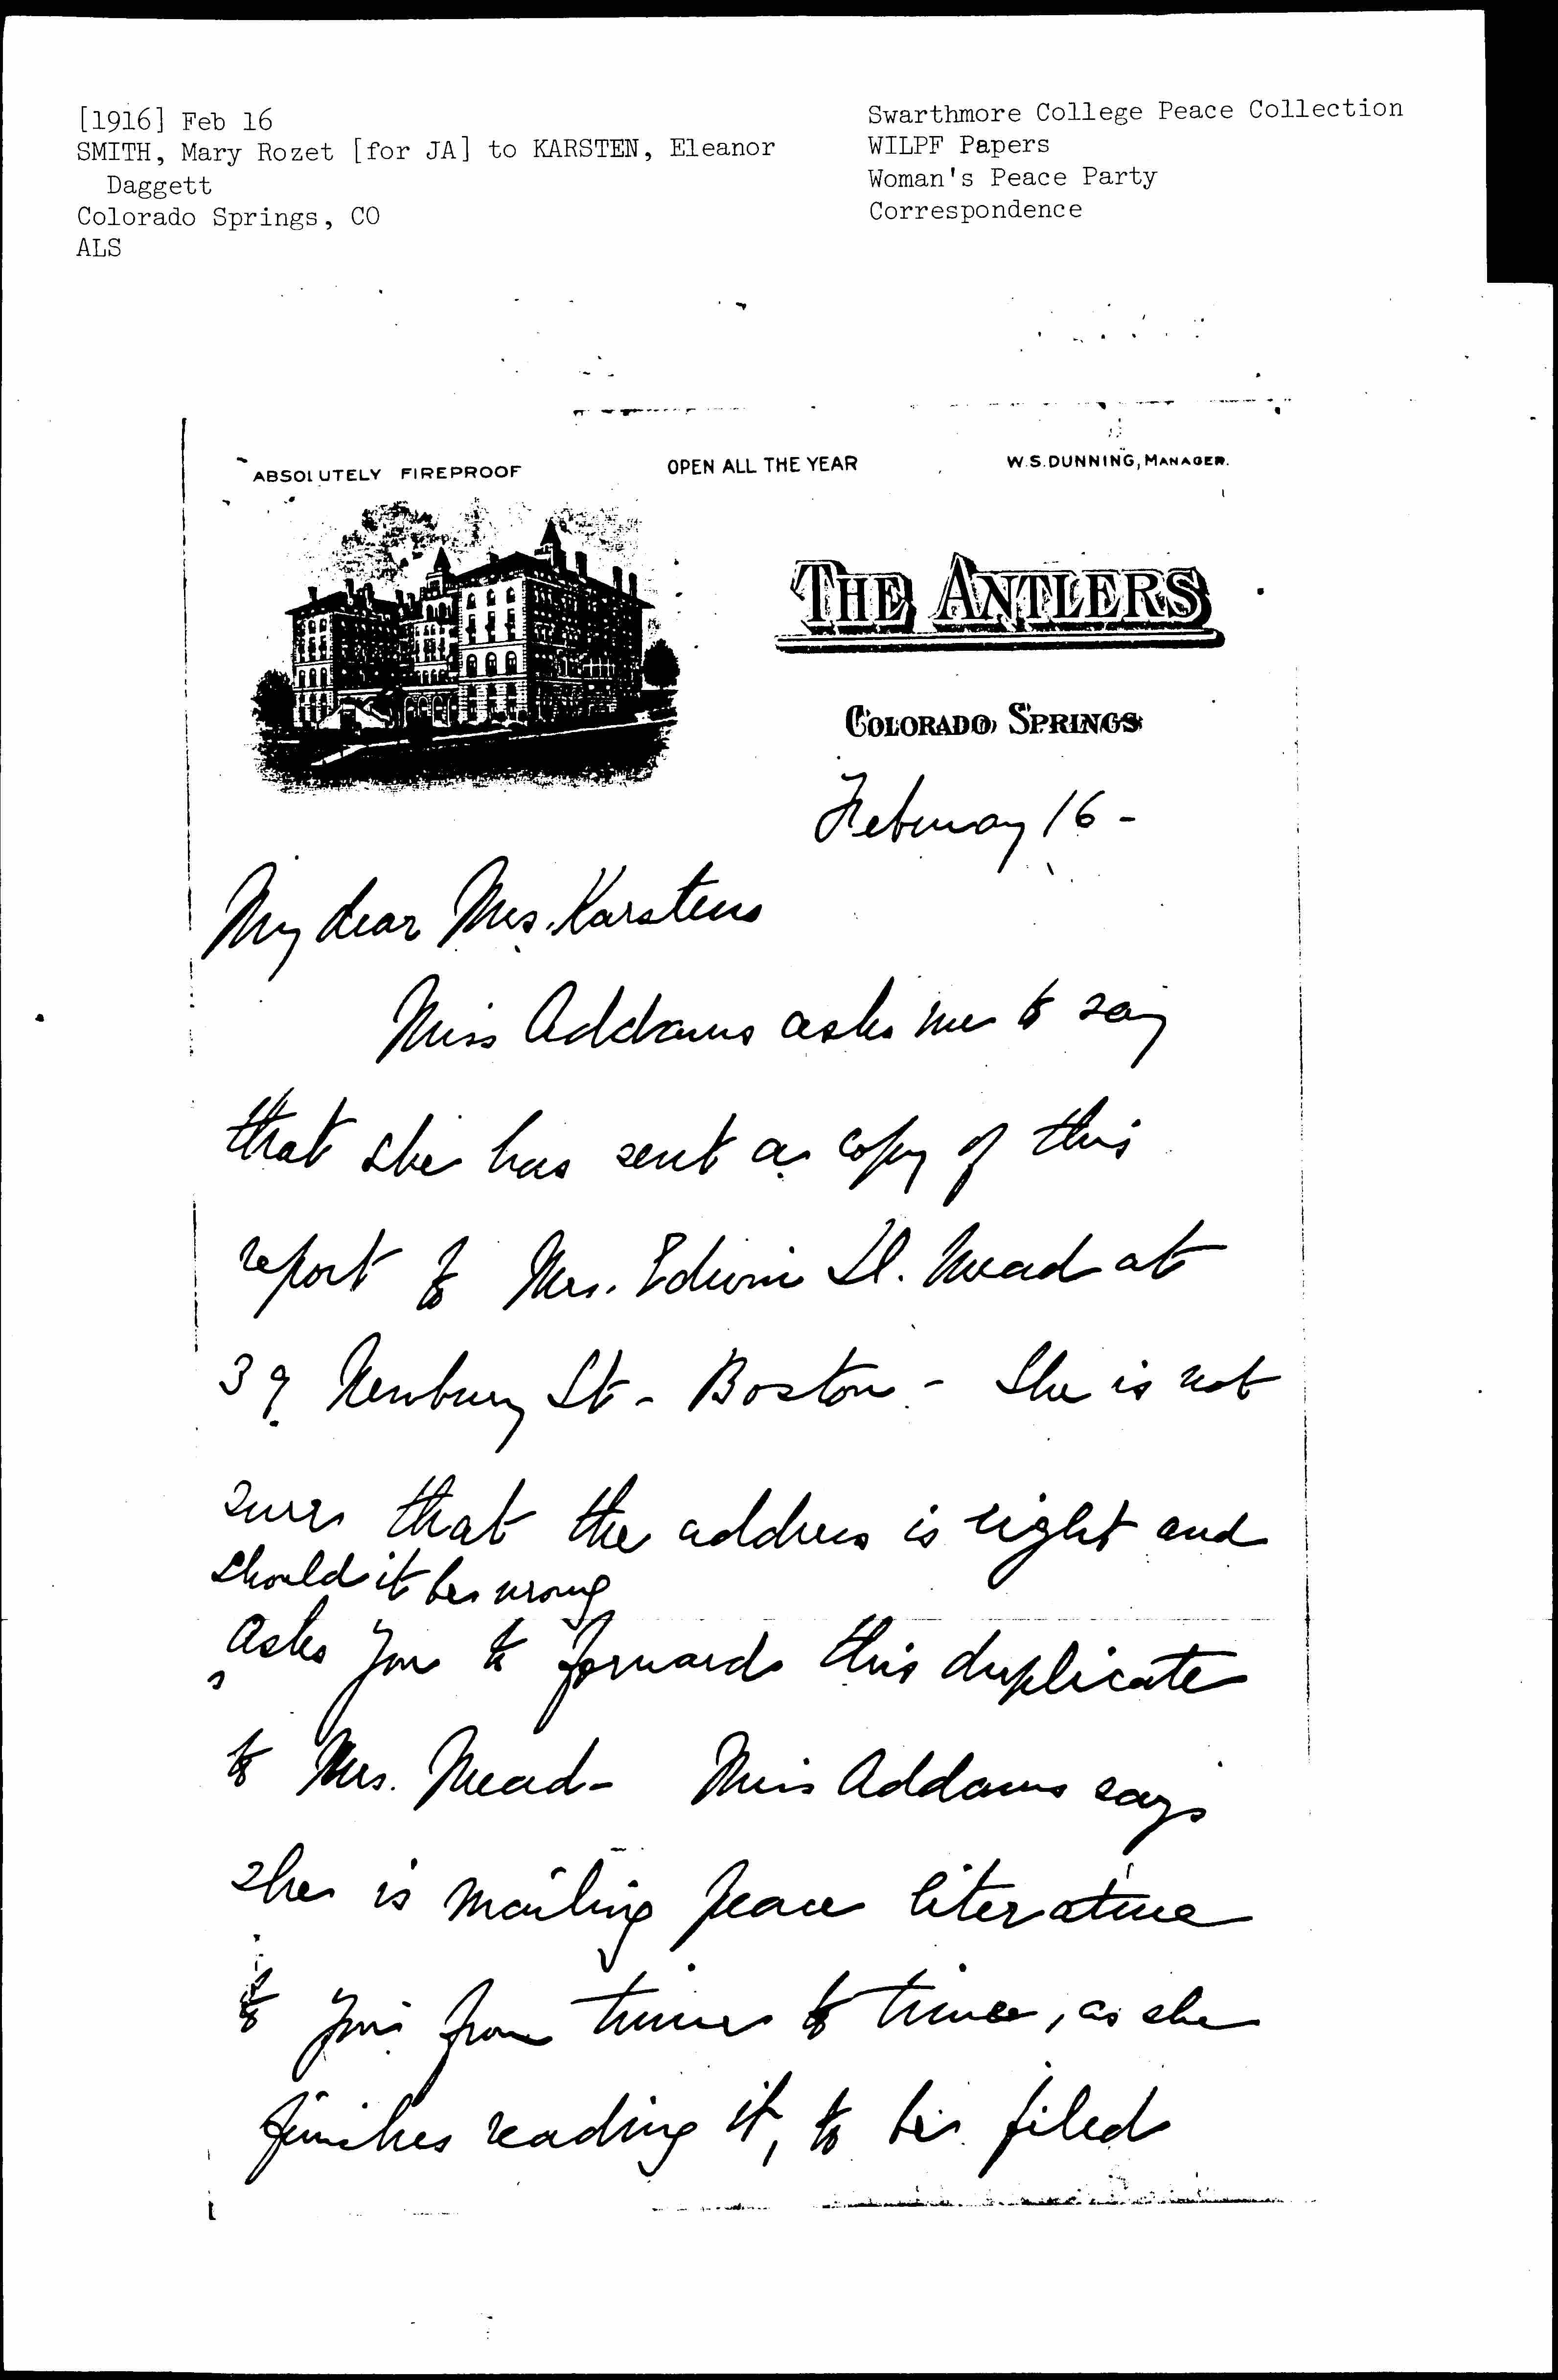 [1916] Feb 16
SMITH, Mary Rozet [for JA] to KARSTEN, Eleanor
Daggett
Colorado Springs, CO
ALS
Swarthmore College Peace Collection
WILPF Papers
Woman's Peace Party
Correspondence
ABSOLUTELY FIREPROOF
OPEN ALL THE YEAR
W.S. DUNNING, MANAGER.
THE ANTLERS
COLORADO SPRINGS
February 16 -
My dear Mrs. Karstens
Miss Addams asks me to say
that she has sent a copy of this
report to Mrs. Edwin D. Mead at
39 Newbury St - Boston - She is not
sure that the address is right and
should it be wrong
asks you to forward this duplicate
to Mrs. Mead - Miss Addams says
she is mailing peace literature
to you from time to time, as she
finishes reading it, to be filed